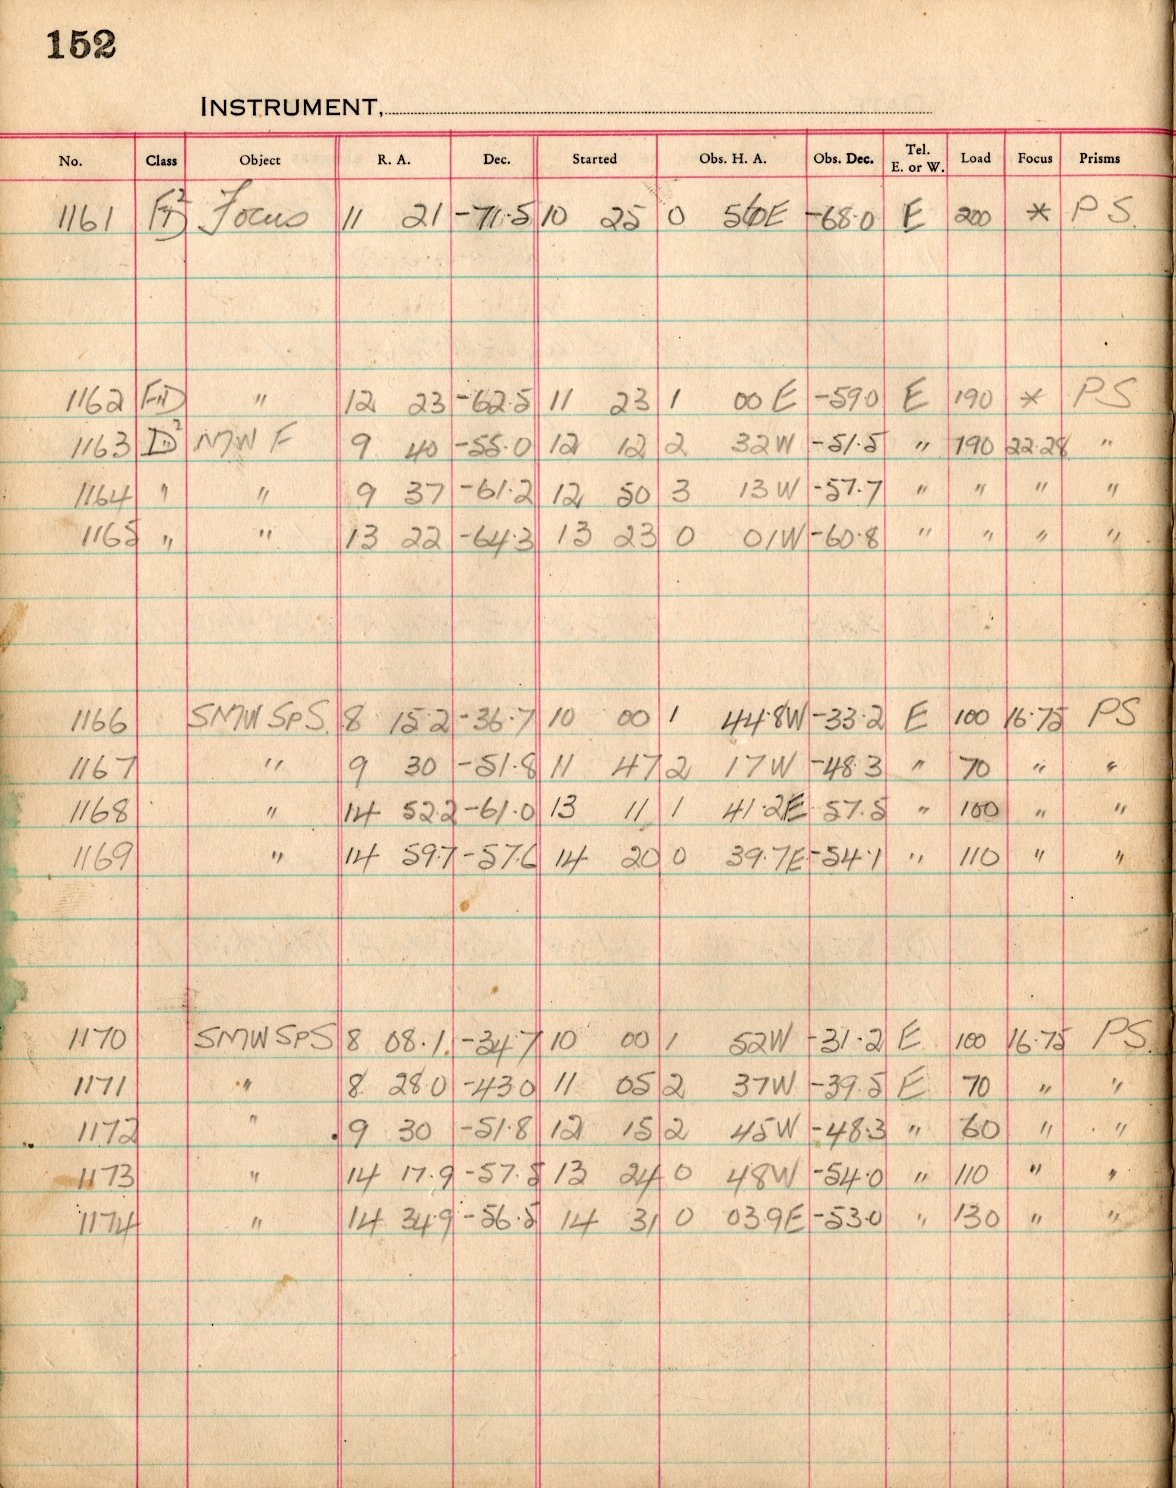 152
INSTRUMENT,
No. Class Object R. A. Dec. Started Obs. H. A. Obs. Dec. Tel. E. or W. Load Focus Prisms
1161 Focus 11 21 -71.5 10 25 0 56E -68.0 E 200 * PS.
1162 F"D " 12 23 -62.5 11 23 1 00 E -59.0 E 190 * PS
1163 D² NMW F 9 40 -55.0 12 12 2 32W -51.5 " 190 22.28 "
1164 " " 9 37 -61.2 12 50 3 13W -57.7 " " " "
1165 " " 13 22 -64.3 13 23 0 01W -60.8 " " " "
1166 SMW SpS. 8 15.2 -36.7 10 00 1 44.8W -33.2 E 100 16.75 PS
1167 " 9 30 -51.8 11 47 2 17W -48.3 " 70 " "
1168 " 14 52.2 -61.0 13 11 1 41.2E 57.5 " 100 " "
1169 " 14 59.7 -57.6 14 20 0 39.7E -54.1 " 110 " "
1170 SMW SpS 8 08.1 -34.7 10 00 1 52W -31.2 E 100 16.75 PS.
1171 " 8 28.0 -43.0 11 05 2 37W -39.5 E 70 " "
1172 " 9 30 -51.8 12 15 2 45W -48.3 " 60 " "
1173 " 14 17.9 -57.5 13 24 0 48W -54.0 " 110 " "
1174 " 14 34.9 -56.5 14 31 0 03.9E -53.0 " 130 " "